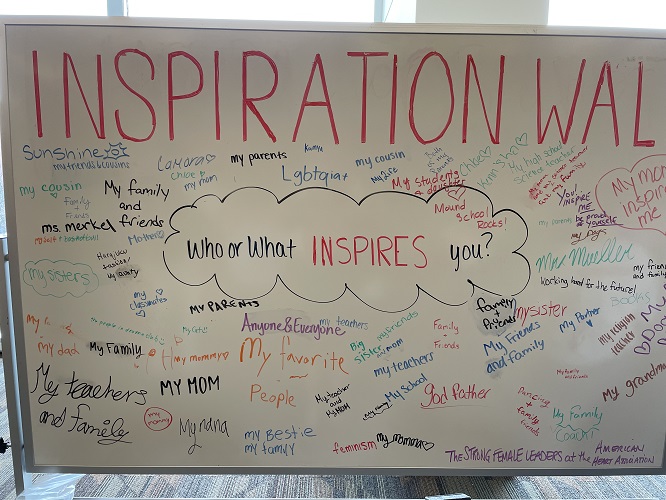 INSPIRATION WAL
Sunshine
my friends & cousins
Camora
Chloe
my mom
my parents
Kamya
my cousin
My life
Lgbtqia+
My students
& daughter
Chloe
my high school
science teacher
my cousin
family
+
Friends
My family
and
friends
ms. merkel
Mother
Mound
School
Rocks!
You!
INSPIRE
ME
be proud of
yourself
my parents
my Dog
My mom
inspires
me
Who or What INSPIRES you?
my sisters
my family
my
classmates
Mr Mueller
working hard for the future!
my friends
and family
BOOKS
MY PARENTS
Anyone & Everyone
my teachers
my friends
Big
sister
my mom
Family
+
Friends
family
+
friends
my sister
My Friends
and family
My Partner
my kitchen
teacher
my dad
My Family
my mommy
My favorite
People
my teachers
My School
My teachers
and family
MY MOM
my
mommy
My nana
My teacher
and
My MOM
god father
my family
and friends
Dancing
+
Family
friends
My Family
Coach!
My grandma
my Bestie
my family
feminism
my momma
THE STRONG FEMALE LEADERS at the AMERICAN
HEART ASSOCIATION